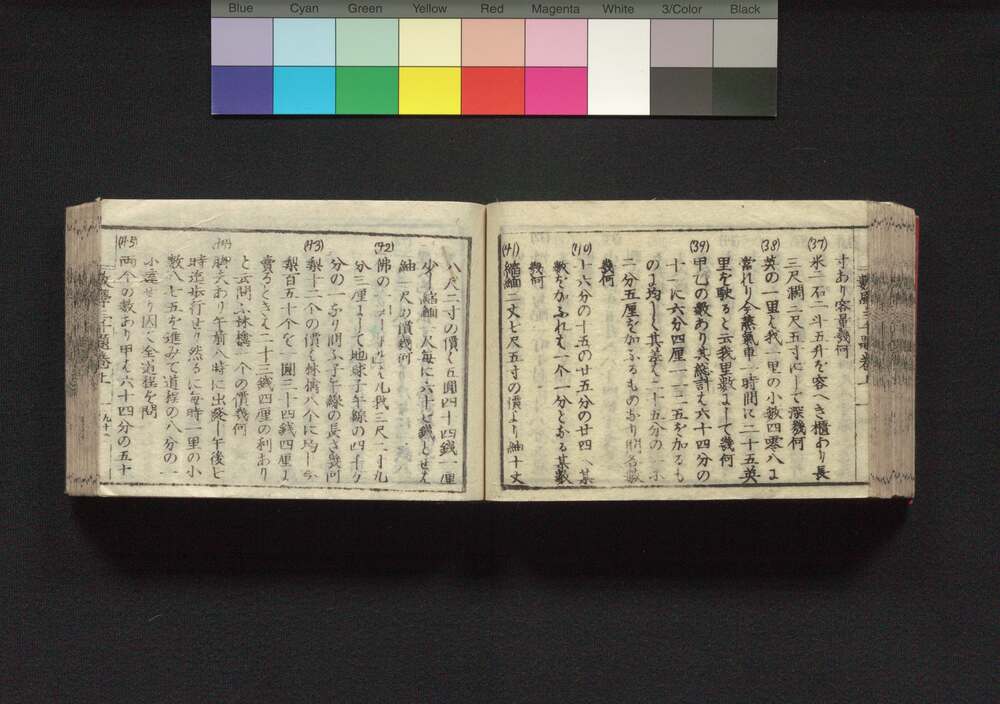 Blue Cyan Green Yellow Red Magenta White 3/Color Black
寸あり容量幾何
(37) 米二石二斗五升を容へき櫃あり長
三尺濶二尺五寸にして深幾何
(38) 英の一里は我一里の小数四零八に
當れり今蒸氣車一時間に二十五英
里を駛ると云我里数にして幾何
(39) 甲乙の数あり其総計は六十四分の
十一に六分四厘一一二五を加るも
のに均しく其差は二十五分の
二分五厘を加ふるものなり問各数
幾何
(40) 十六分の十五の廿五分の廿四へ某
数を加ふれは一个一分となる某数
幾何
(41) 縮緬二丈七尺五寸の價より紬十丈
八尺二寸の價は五圓四十四錢一厘
少し縮緬一尺毎に六十七錢とせは
紬一尺の價幾何
(42) 佛の
は我三尺二寸九
分三厘にして地球子午線の四千万
分の一なり問ふ子午線の長さ幾何
(43) 梨十二个の價は林檎八个に均し今
梨百五十个を一圓三十四錢四厘に
賣るときは二十三錢四厘の利あり
と云問ふ林檎一个の價幾何
(44) 脚夫あり午前八時に出發し午後七
時迄歩行せり然るに毎時一里の小
数八七五を進みて道程の八分の一
に達せり因て全道程を問
(45) 両个の数あり甲は六十四分の五十